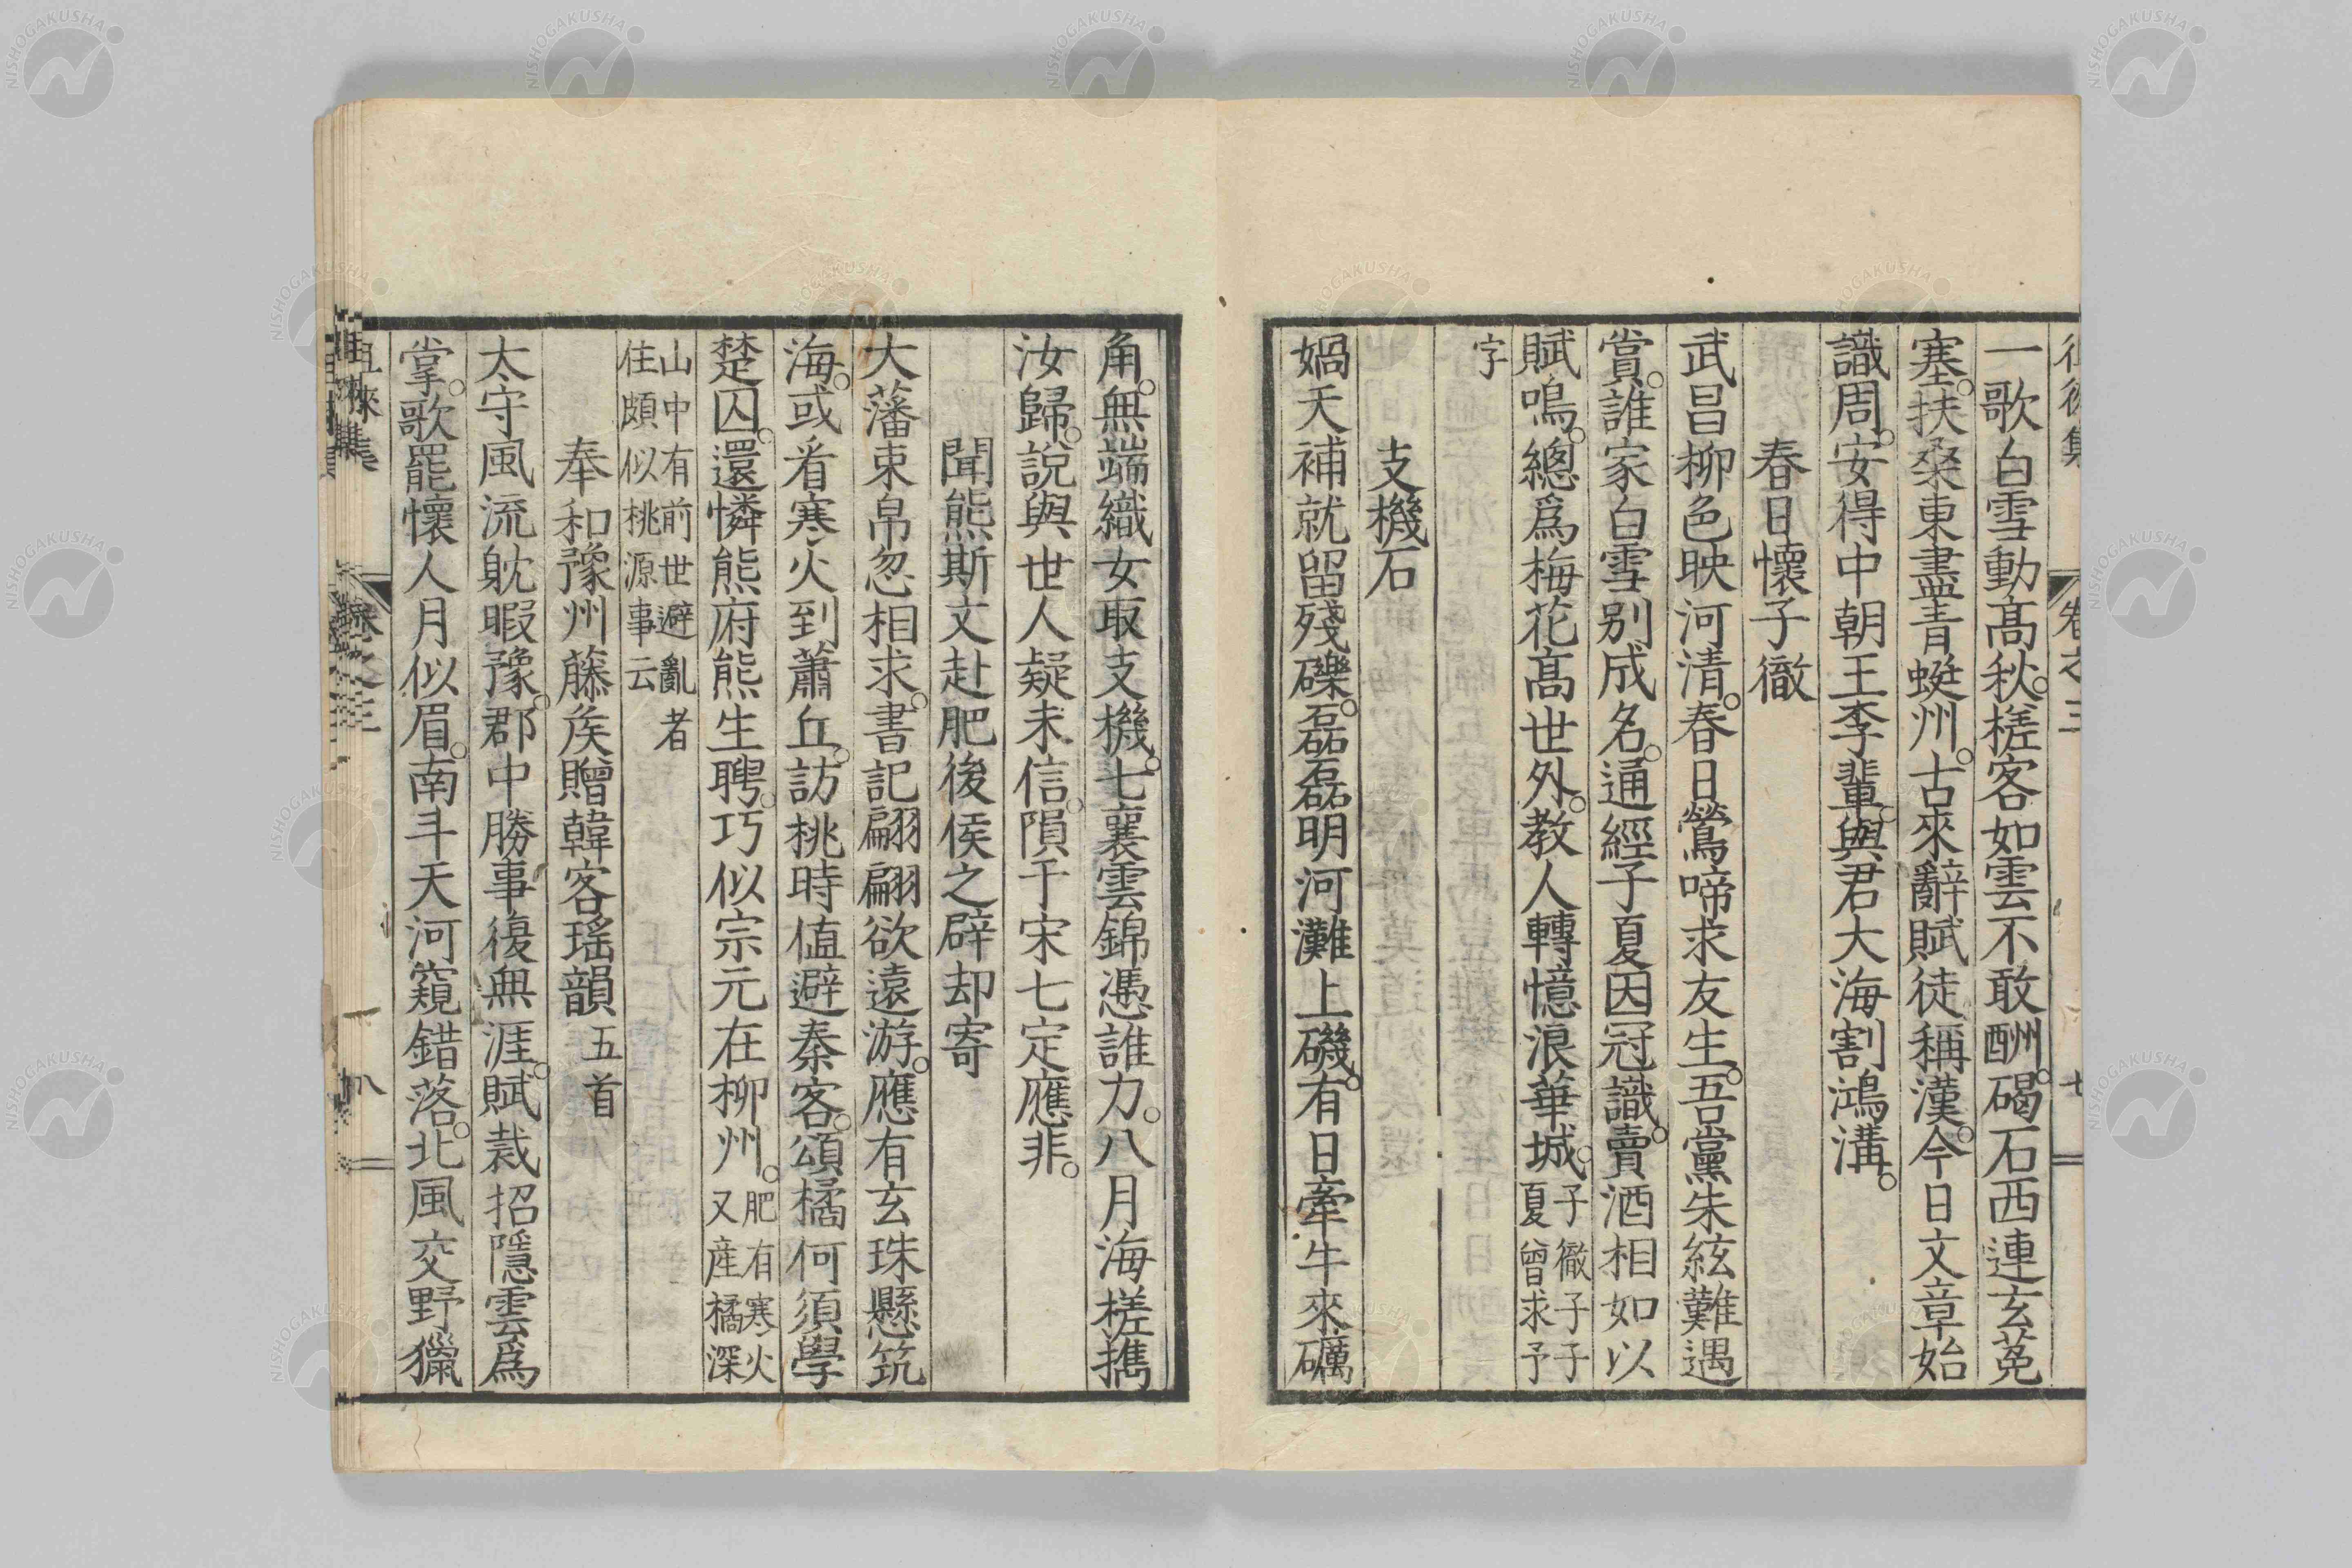 一歌白雪動髙秋。槎客如雲不敢酬。碣石西連玄菟
塞。扶桑東盡青蜓州。古來辭賦徒稱漢。今日文章始
識周。安得中朝王李輩。與君大海割鴻溝。
春日懷子徹
武昌柳色映河清。春日鶯啼求友生。吾黨朱絃難遇
賞。誰家白雪別成名。通經子夏因冠識。賣酒相如以
賦鳴。總爲梅花髙世外。教人轉憶浪華城。子徹子子
夏曾求予
字
支機石
媧天補就留殘礫。磊磊明河灘上磯。有日牽牛來礪
角。無端織女取支機。七襄雲錦憑誰力。八月海槎携
汝歸。說與世人疑未信。隕于宋七定應非。
聞熊斯文赴肥後侯之辟却寄
大藩束帛忽相求。書記翩翩欲遠游。應有玄珠懸筑
海。或看寒火到蕭丘。訪桃時値避秦客。頌橘何須學
楚囚。還憐熊府熊生聘。巧似宗元在柳州。肥有寒火
又産橘深
山中有前世避亂者
住頗似桃源事云
奉和豫州藤矦贈韓客瑤韻五首
太守風流躭暇豫。郡中勝事復無涯。賦裁招隱雲爲
掌。歌罷懷人月似眉。南斗天河窺錯落。北風交野獵
徂徠集
卷之三
八
NISHOGAKUSHA